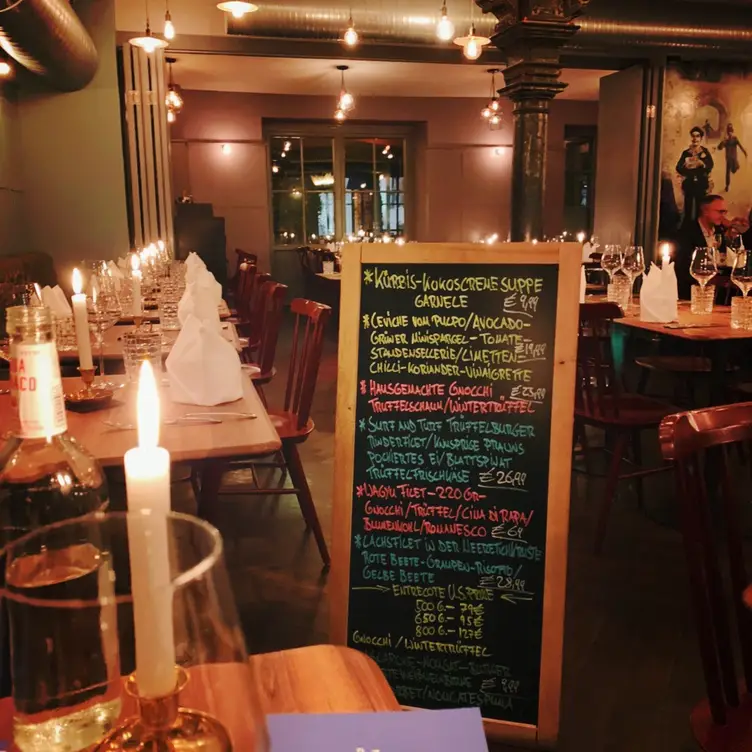 *KÜRBIS-KOKOSCREMESUPPE
GARNELE €9,99
*CEVICHE VOM PULPO/AVOCADO-
GRÜNER MINISPARGEL-TOMATE-
STAUDENSELLERIE/LIMETTEN- €19,99
CHILLI-KORIANDER-VINAIGRETTE
*HAUSGEMACHTE GNOCCHI €23,99
TRÜFFELSCHAUM/WINTERTRÜFFEL
*SURT AND TURF TRÜFFELBURGER
RINDERFILET/KNUSPRIGE PRAWNS
POCHIERTES EI/BLATTSPINAT
TRÜFFELFRISCHKÄSE €26,99
*WAGYU FILET-220 GR-
GNOCCHI/TRÜFFEL/CIMA DI RAPA/
BLUMENKOHL/ROMANESCO €69
*LACHSFILET IN DER MEERETTICHKRUSTE
ROTE BEETE-GRAUPEN-RISOTTO/
GELBE BEETE €28,99
→ ENTRECOTE U.S. PRIME ←
500 G.- 79€
650 G.- 95€
800 G.- 127€
GNOCCHI/WINTERTRÜFFEL
€9,99